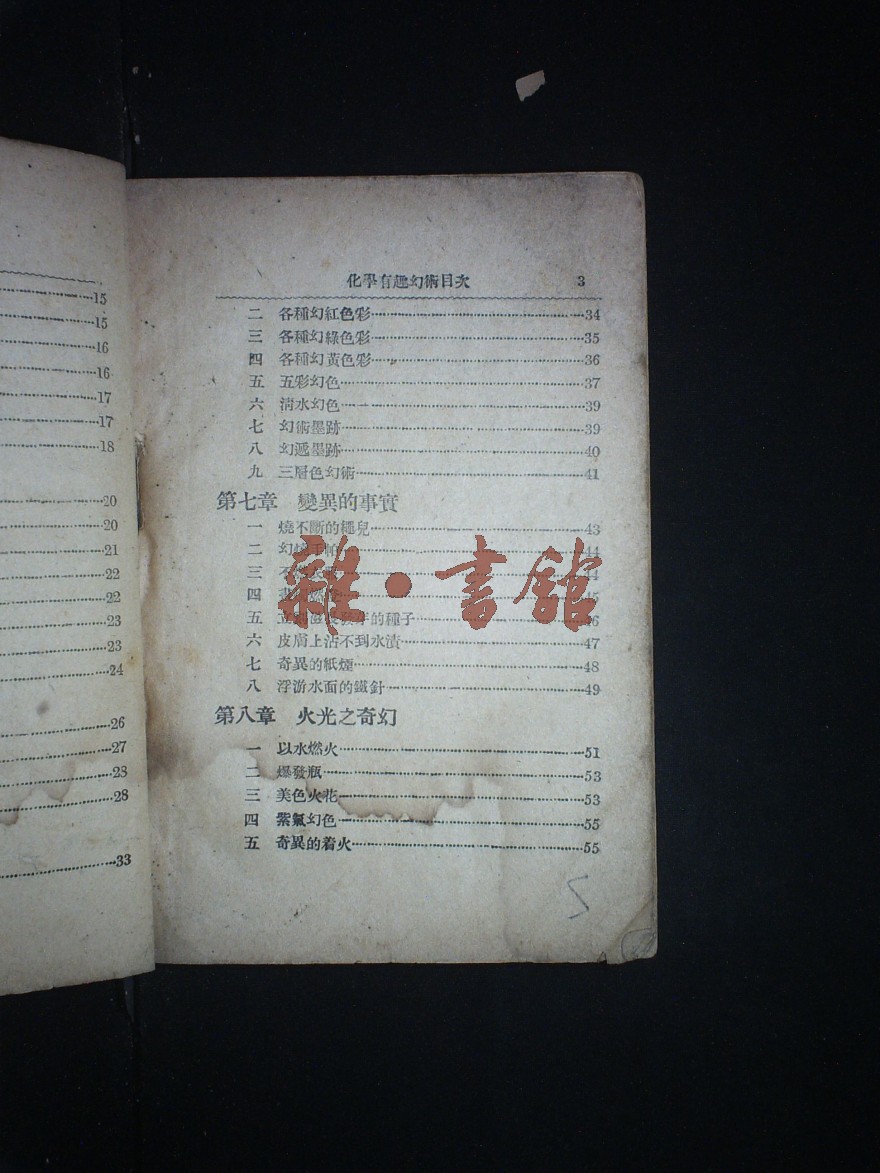 15
15
16
16
17
17
18
20
20
21
22
22
23
23
24
26
27
28
28
33
化學有趣幻術目次 3
二 各種幻紅色彩 34
三 各種幻綠色彩 35
四 各種幻黃色彩 36
五 五彩幻色 37
六 淸水幻色 39
七 幻術墨跡 39
八 幻遞墨跡 40
九 三層色幻術 41
第七章 變異的事實
一 燒不斷的繩兒 43
二 幻 手帕 44
三 不 44
四 45
五 立 的種子 46
六 皮膚上沾不到水漬 47
七 奇異的紙煙 48
八 浮游水面的鐵針 49
第八章 火光之奇幻
一 以水燃火 51
二 爆發瓶 53
三 美色火花 53
四 紫氣幻色 55
五 奇異的着火 55
雜·書館
5